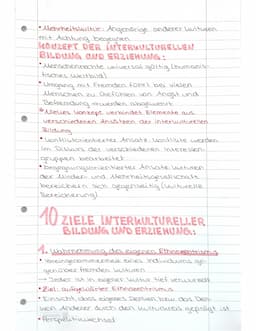 • Mehrheitskultur: Angehörige anderer Kulturen
mit Achtung begegnen
KONZEPT DER INTERKULTURELLEN
BILDUNG UND ERZIEHUNG:
• Menschenrechte universal gültig (humanis-
tisches Weltbild)
• Umgang mit Fremden führt bei vielen
Menschen zu Gefühlen von Angst und
Bedrohung
• Neues Konzept verbindet Elemente aus
verschiedenen Ansätzen der interkulturellen
Bildung
• konfliktorientierter Ansatz: Konflikte werden
im Diskurs der verschiedenen Interessen-
gruppen bearbeitet
• begegnungsorientierter Ansatz: Kulturen
der Minder- und Mehrheitsgesellschaft
bereichern sich gegenseitig (kulturelle
Bereicherung)
10 ZIELE INTERKULTURELLER
BILDUNG UND ERZIEHUNG:
1. Wahrnehmung des eigenen Ethnozentrismus
• Voreingenommenheit eines Individuums ge-
genüber fremden Kulturen
→ Jeder ist in eigener Kultur tief verwurzelt
• Ziel: aufgeklärter Ethnozentrismus
• Einsicht, dass eigenes Denken bzw. das Den-
ken Anderer durch den Kulturkreis geprägt ist
Perspektivwechsel